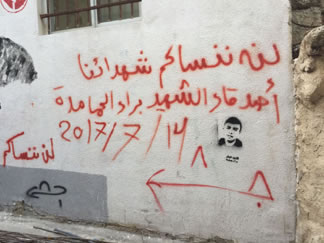 لن ننساكم شهدائنا
أصدقاء الشهيد براء الحمامدة
2017/7/14
لن ننساكم